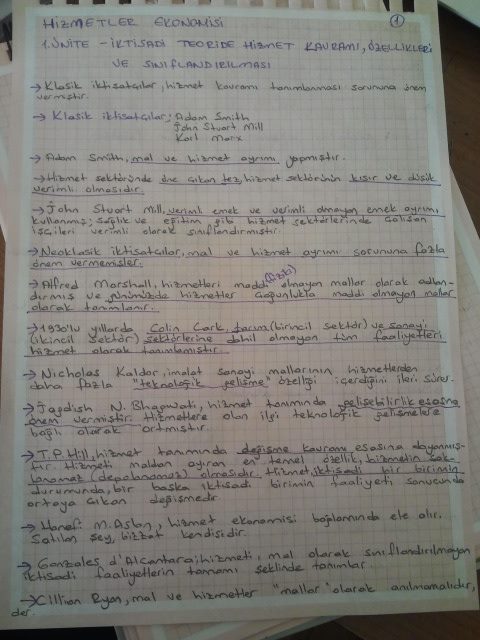 HİZMETLER EKONOMİSİ
1
1.ÜNİTE - İKTİSADİ TEORİDE HİZMET KAVRAMI, ÖZELLİKLERİ
VE SINIFLANDIRILMASI
→ Klasik iktisatçılar, hizmet kavramı tanımlanması sorununa önem
vermiştir.
→ Klasik iktisatçılar; Adam Smith
John Stuart Mill
Karl Marx
→ Adam Smith, mal ve hizmet ayrımı yapmıştır.
→ Hizmet sektöründe öne çıkan tez, hizmet sektörünün kısır ve düşük
verimli olmasıdır.
→ John Stuart Mill, verimli emek ve verimli olmayan emek ayrımı
kullanmış; sağlık ve eğitim gibi hizmet sektörlerinde çalışan
işçileri verimli olarak sınıflandırmıştır.
→ Neoklasik iktisatçılar, mal ve hizmet ayrımı sorununa fazla
önem vermemişler.
→ Alfred Marshall, hizmetleri maddi (fiziki) olmayan mallar olarak adlan-
dırmış ve günümüzde hizmetler çoğunlukla maddi olmayan mallar
olarak tanımlanır.
→ 1930'lu yıllarda Colin Cark, tarım (birincil sektör) ve sanayi
(ikincil sektör) sektörlerine dahil olmayan tüm faaliyetleri
hizmet olarak tanımlamıştır.
→ Nicholas Kaldor, imalat sanayi mallarının hizmetlerden
daha fazla "teknolojik gelişme" özelliği içerdiğini ileri sürer.
→ Jagdish N. Bhagwati, hizmet tanımında gelişebilirlik esasına
önem vermiştir. Hizmetlere olan ilgi teknolojik gelişmelere
bağlı olarak artmıştır.
→ T.P. Hill, hizmet tanımında değişme kavramı esasına dayanmış-
tır. Hizmeti maldan ayıran en temel özellik, hizmetin sak-
lanamaz (depolanamaz) olmasıdır. Hizmet, iktisadi bir birimin
durumunda, bir başka iktisadi birimin faaliyeti sonucunda
ortaya çıkan değişmedir.
→ M. Aslan, hizmet ekonomisi bağlamında ele alır.
Satılan şey, bizzat kendisidir.
→ Gonzales d'Alcantara; hizmeti, mal olarak sınıflandırılmayan
iktisadi faaliyetlerin tamamı şeklinde tanımlar.
→ Cillian Ryan, mal ve hizmetler "mallar" olarak anılmamalıdır,
der.